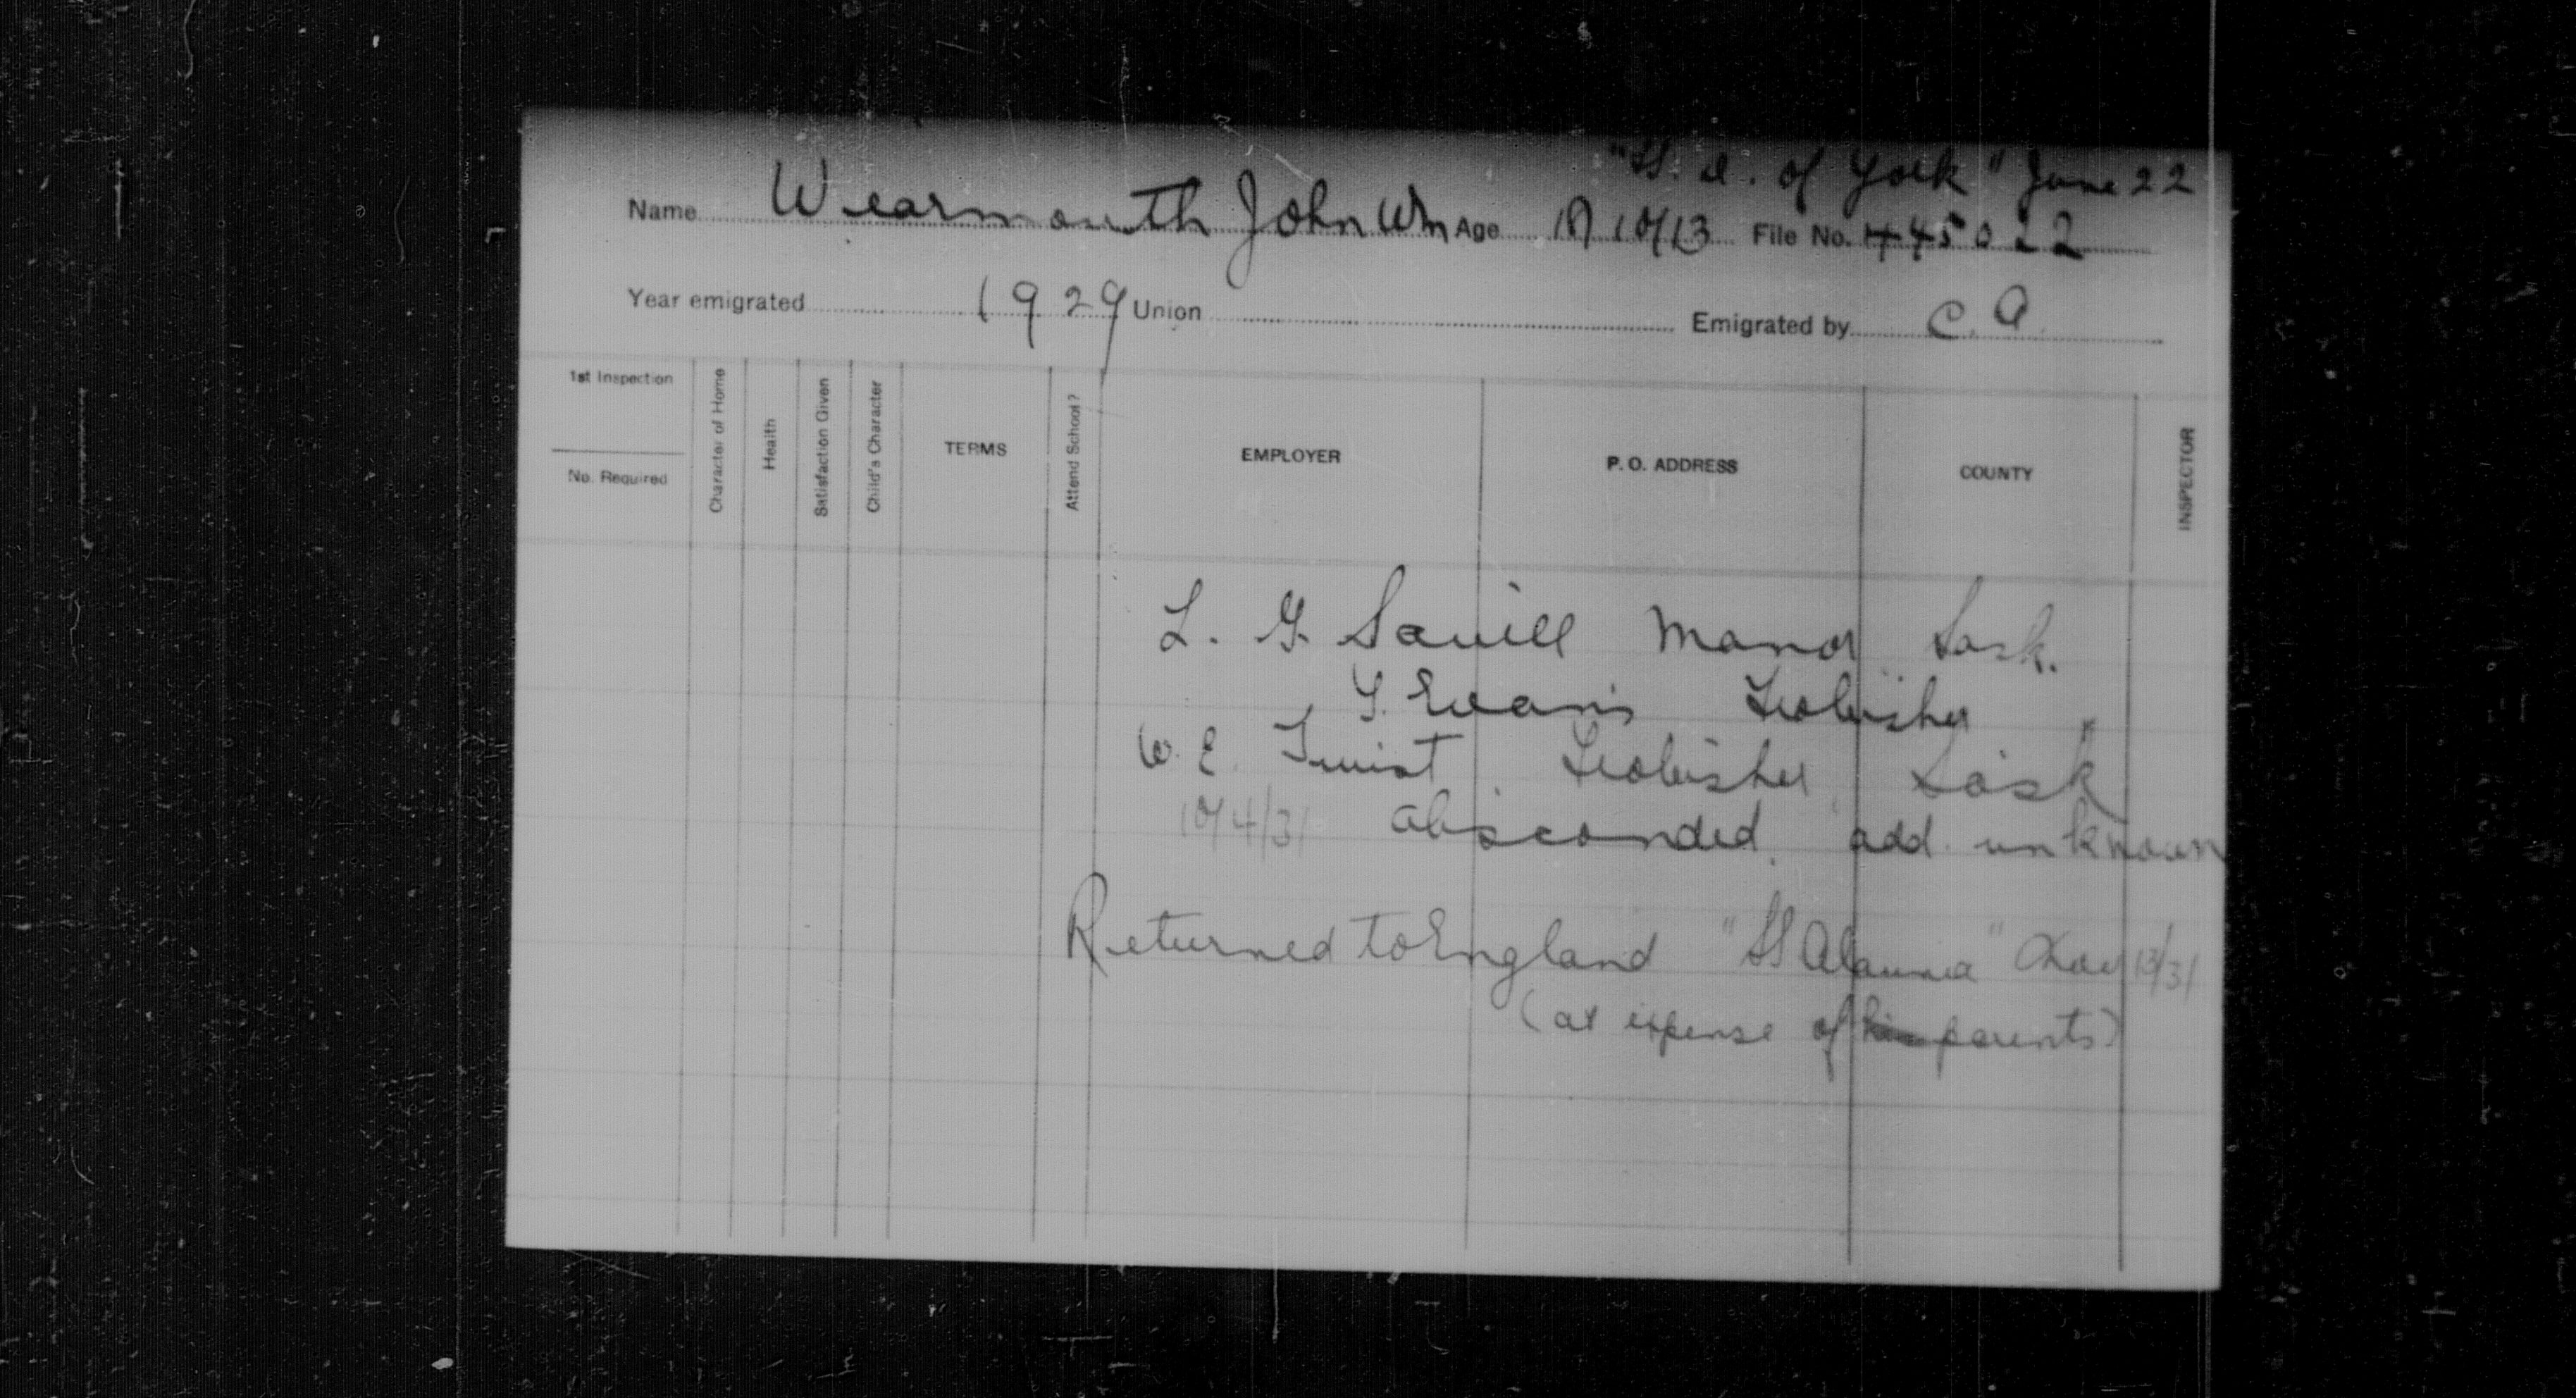 "SS. D. of York" June 22
Name Wearmouth John Wm Age 10/13 File No. 445022
Year emigrated 1929 Union Emigrated by C. A.
1st Inspection
No. Required
Character of Home
Health
Satisfaction Given
Child's Character
TERMS
Attend School?
EMPLOYER
P. O. ADDRESS
COUNTY
INSPECTOR
L. G. Savill Manor Sask.
Evans Frobisher "
W. E. Twist Frobisher, Sask
10/4/31 absconded, add. unknown
Returned to England "SS Alaunia" 13/31
(at expense of his parents)